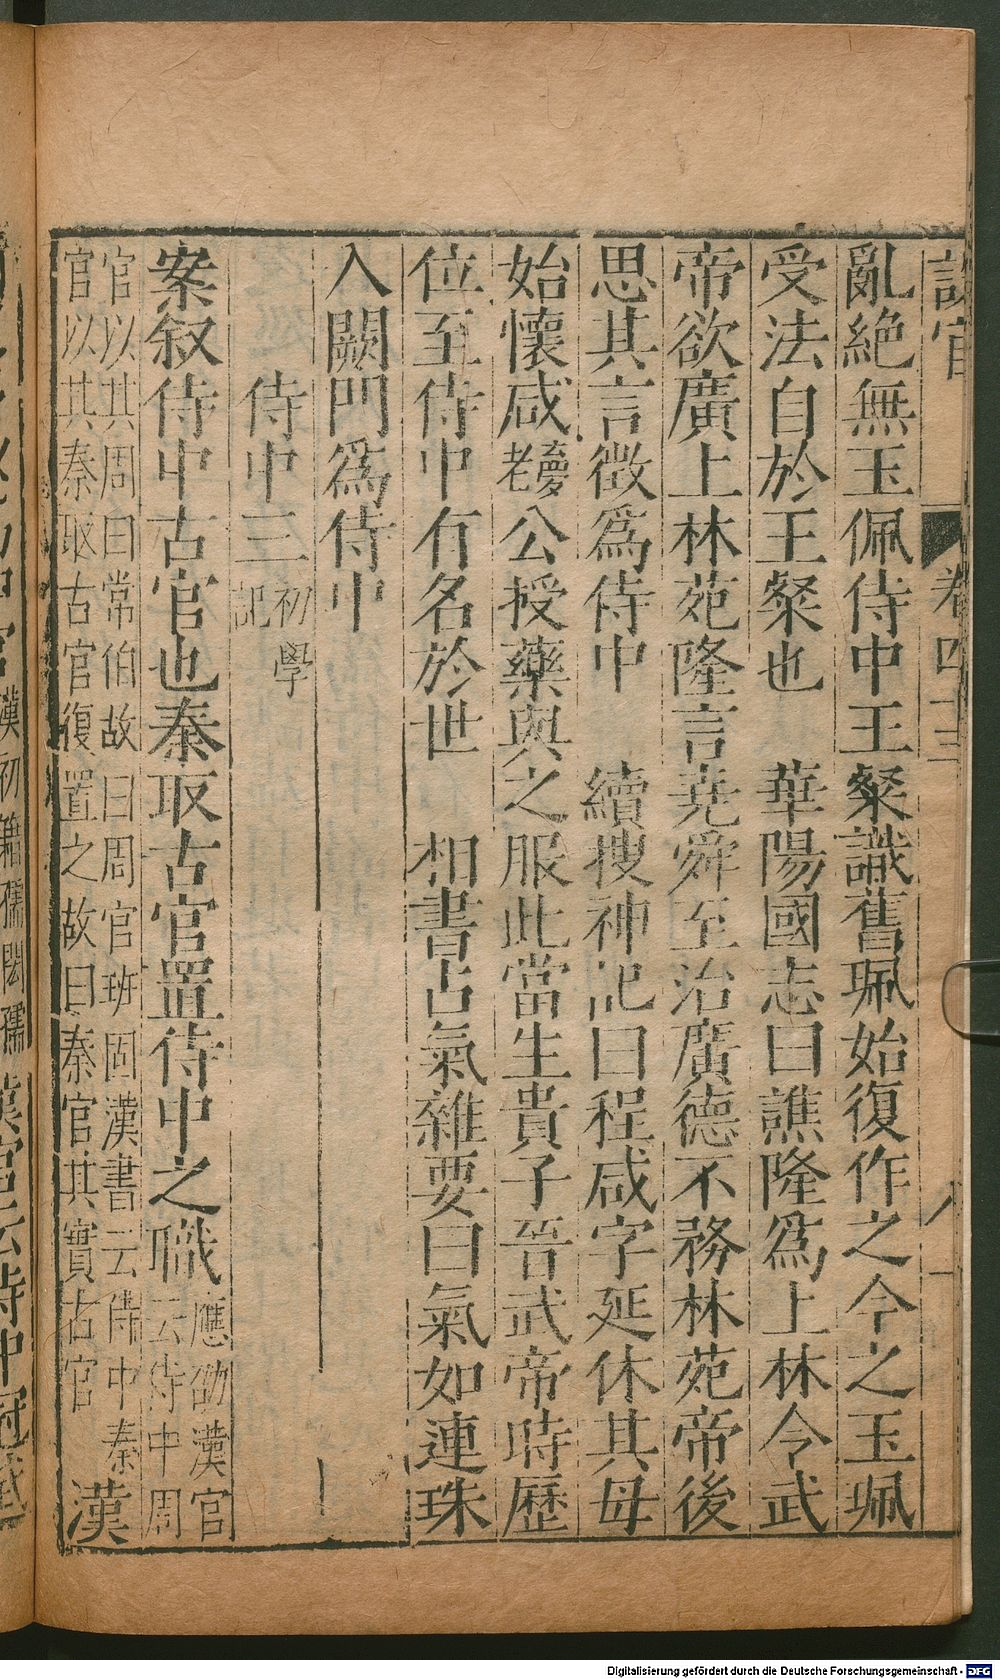 卷四十三
亂絶無玉佩侍中王粲識舊珮始復作之今之玉珮
受法自於王粲也　華陽國志曰譙隆爲上林令武
帝欲廣上林苑隆言堯舜至治廣德不務林苑帝後
思其言徵爲侍中　續搜神記曰程咸字延休其母
始懷咸老夔公授藥與之服此當生貴子晉武帝時歷
位至侍中有名於世　相書占氣雜要曰氣如連珠
入闕門爲侍中
侍中三初學記
案叙侍中古官也秦取古官置侍中之職應劭漢官云侍中周
官以其周曰常伯故曰周官班固漢書云侍中秦
官以其秦取古官復置之故曰秦官其實古官漢
漢初籍孺閎孺漢官云侍中冠
Digitalisierung gefördert durch die Deutsche Forschungsgemeinschaft - DFG